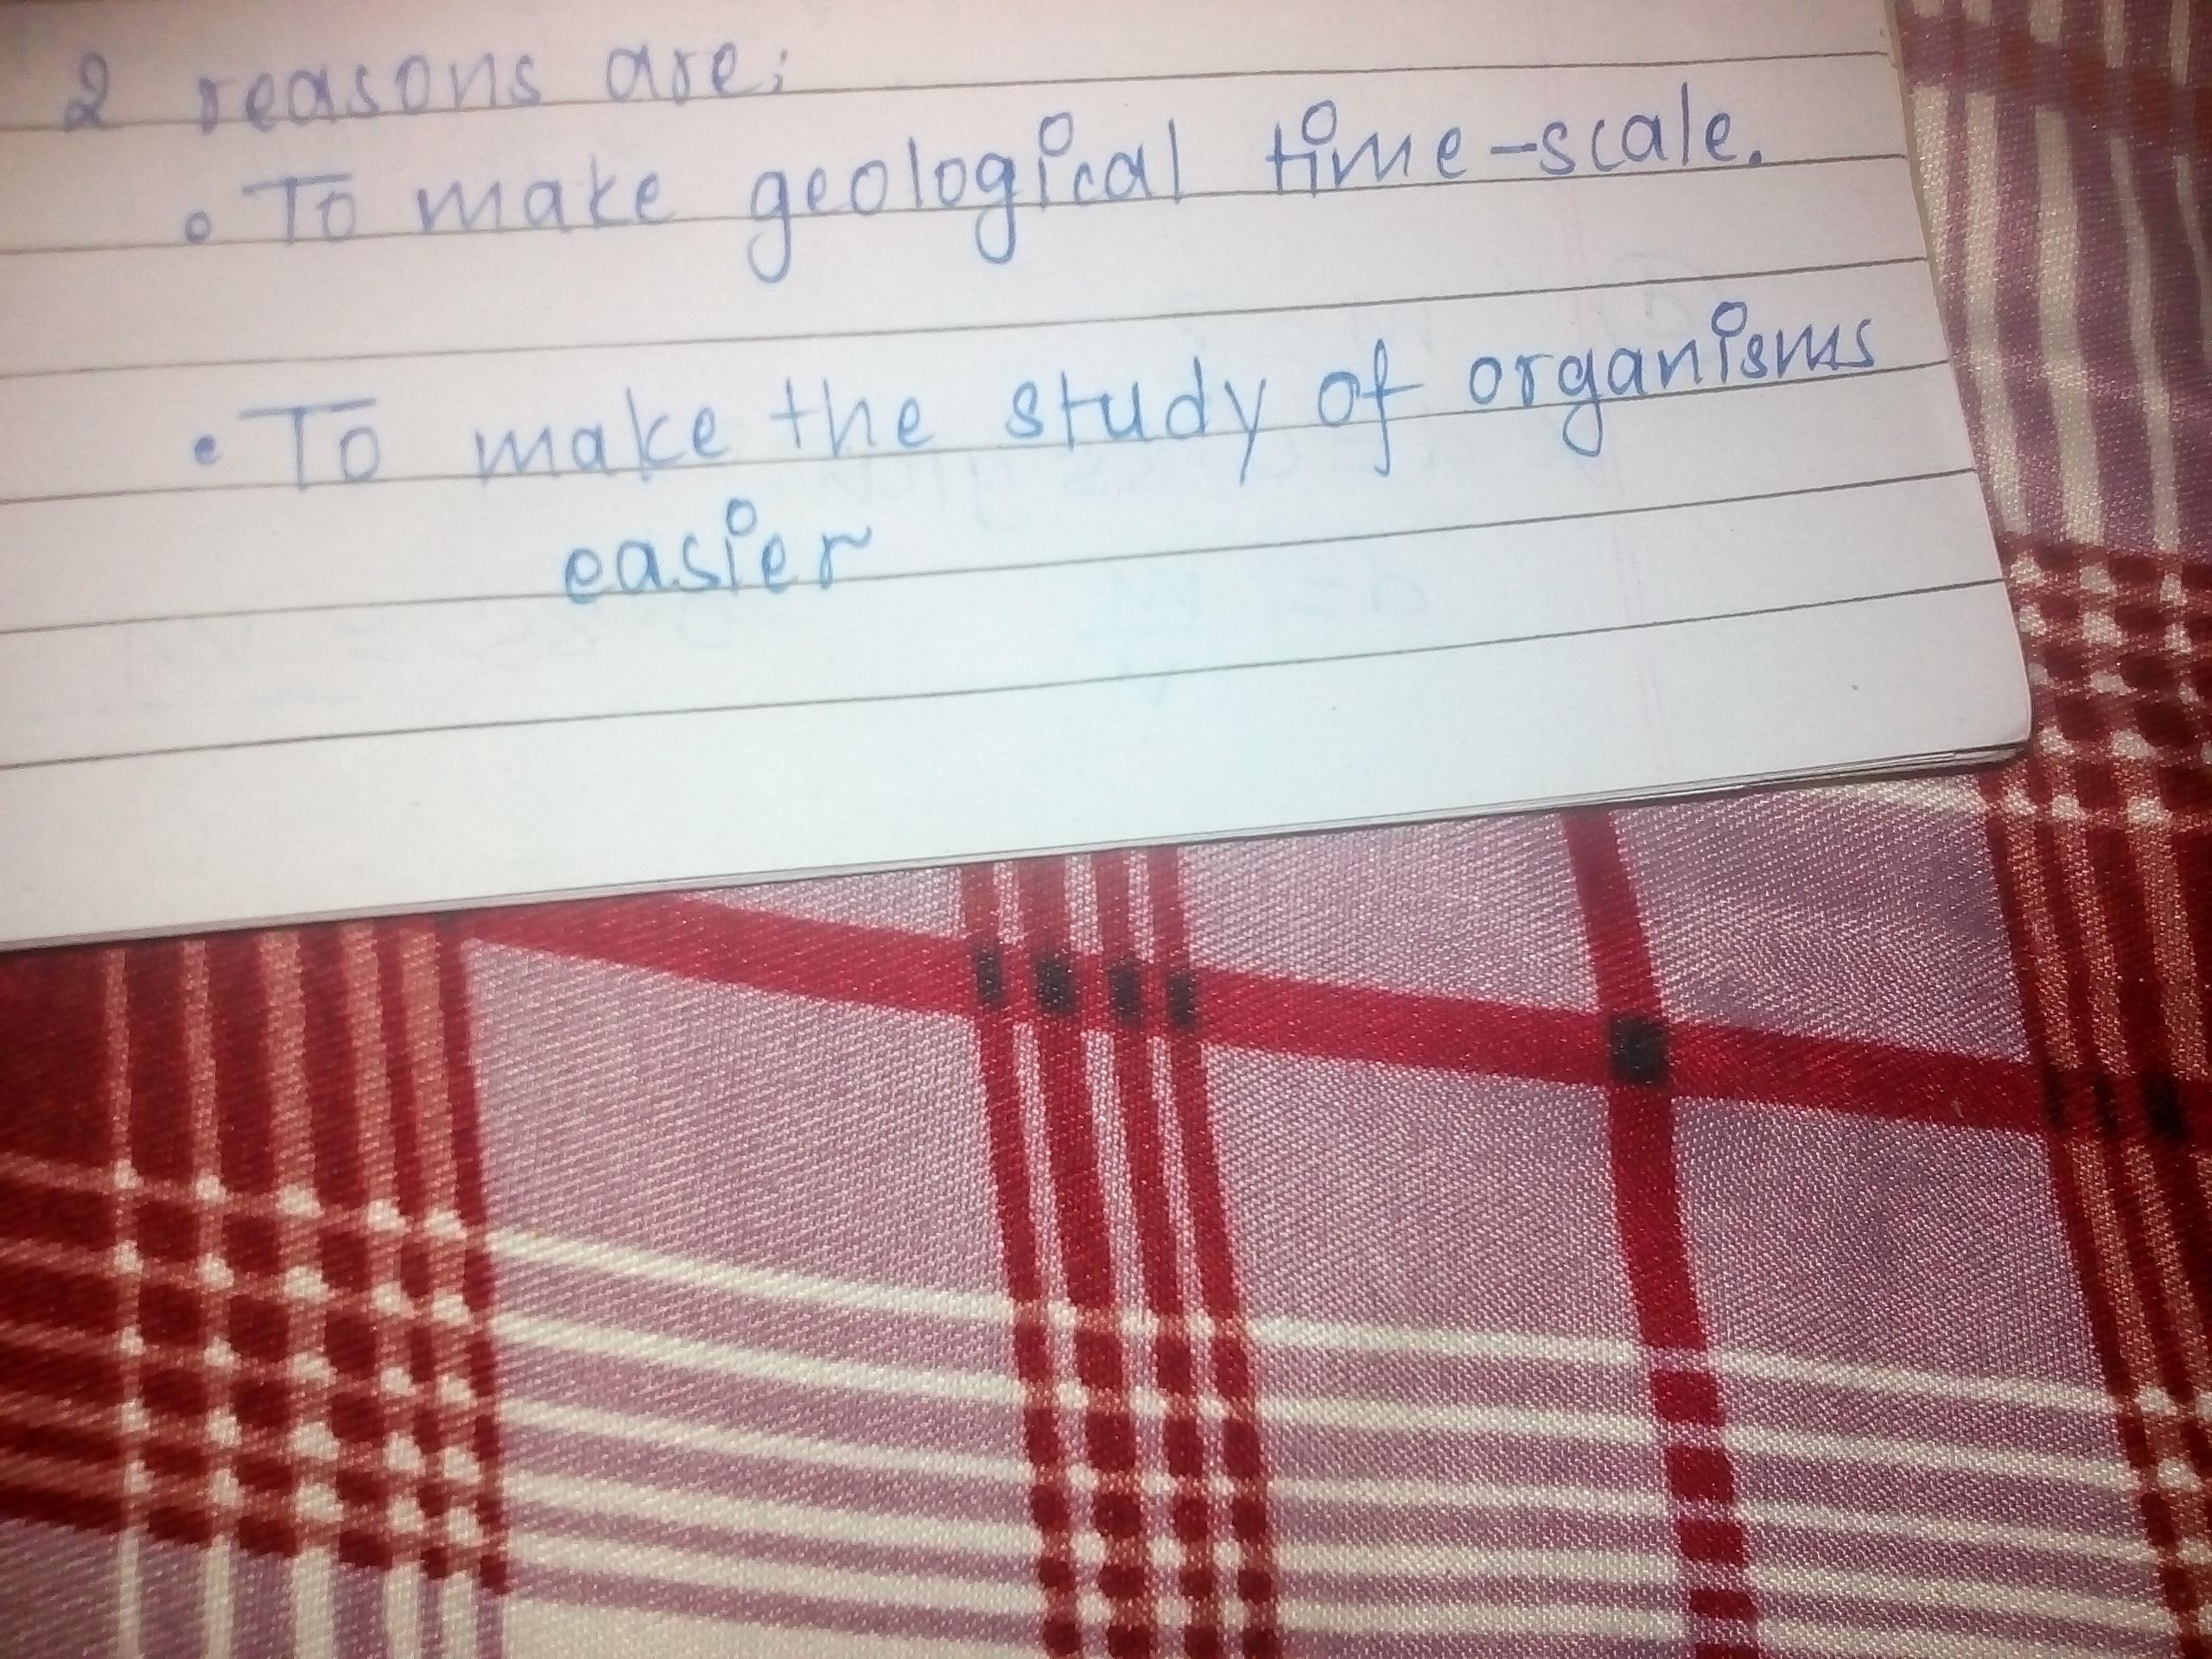 2 reasons are:
• To make geological time-scale.
• To make the study of organisms
easier